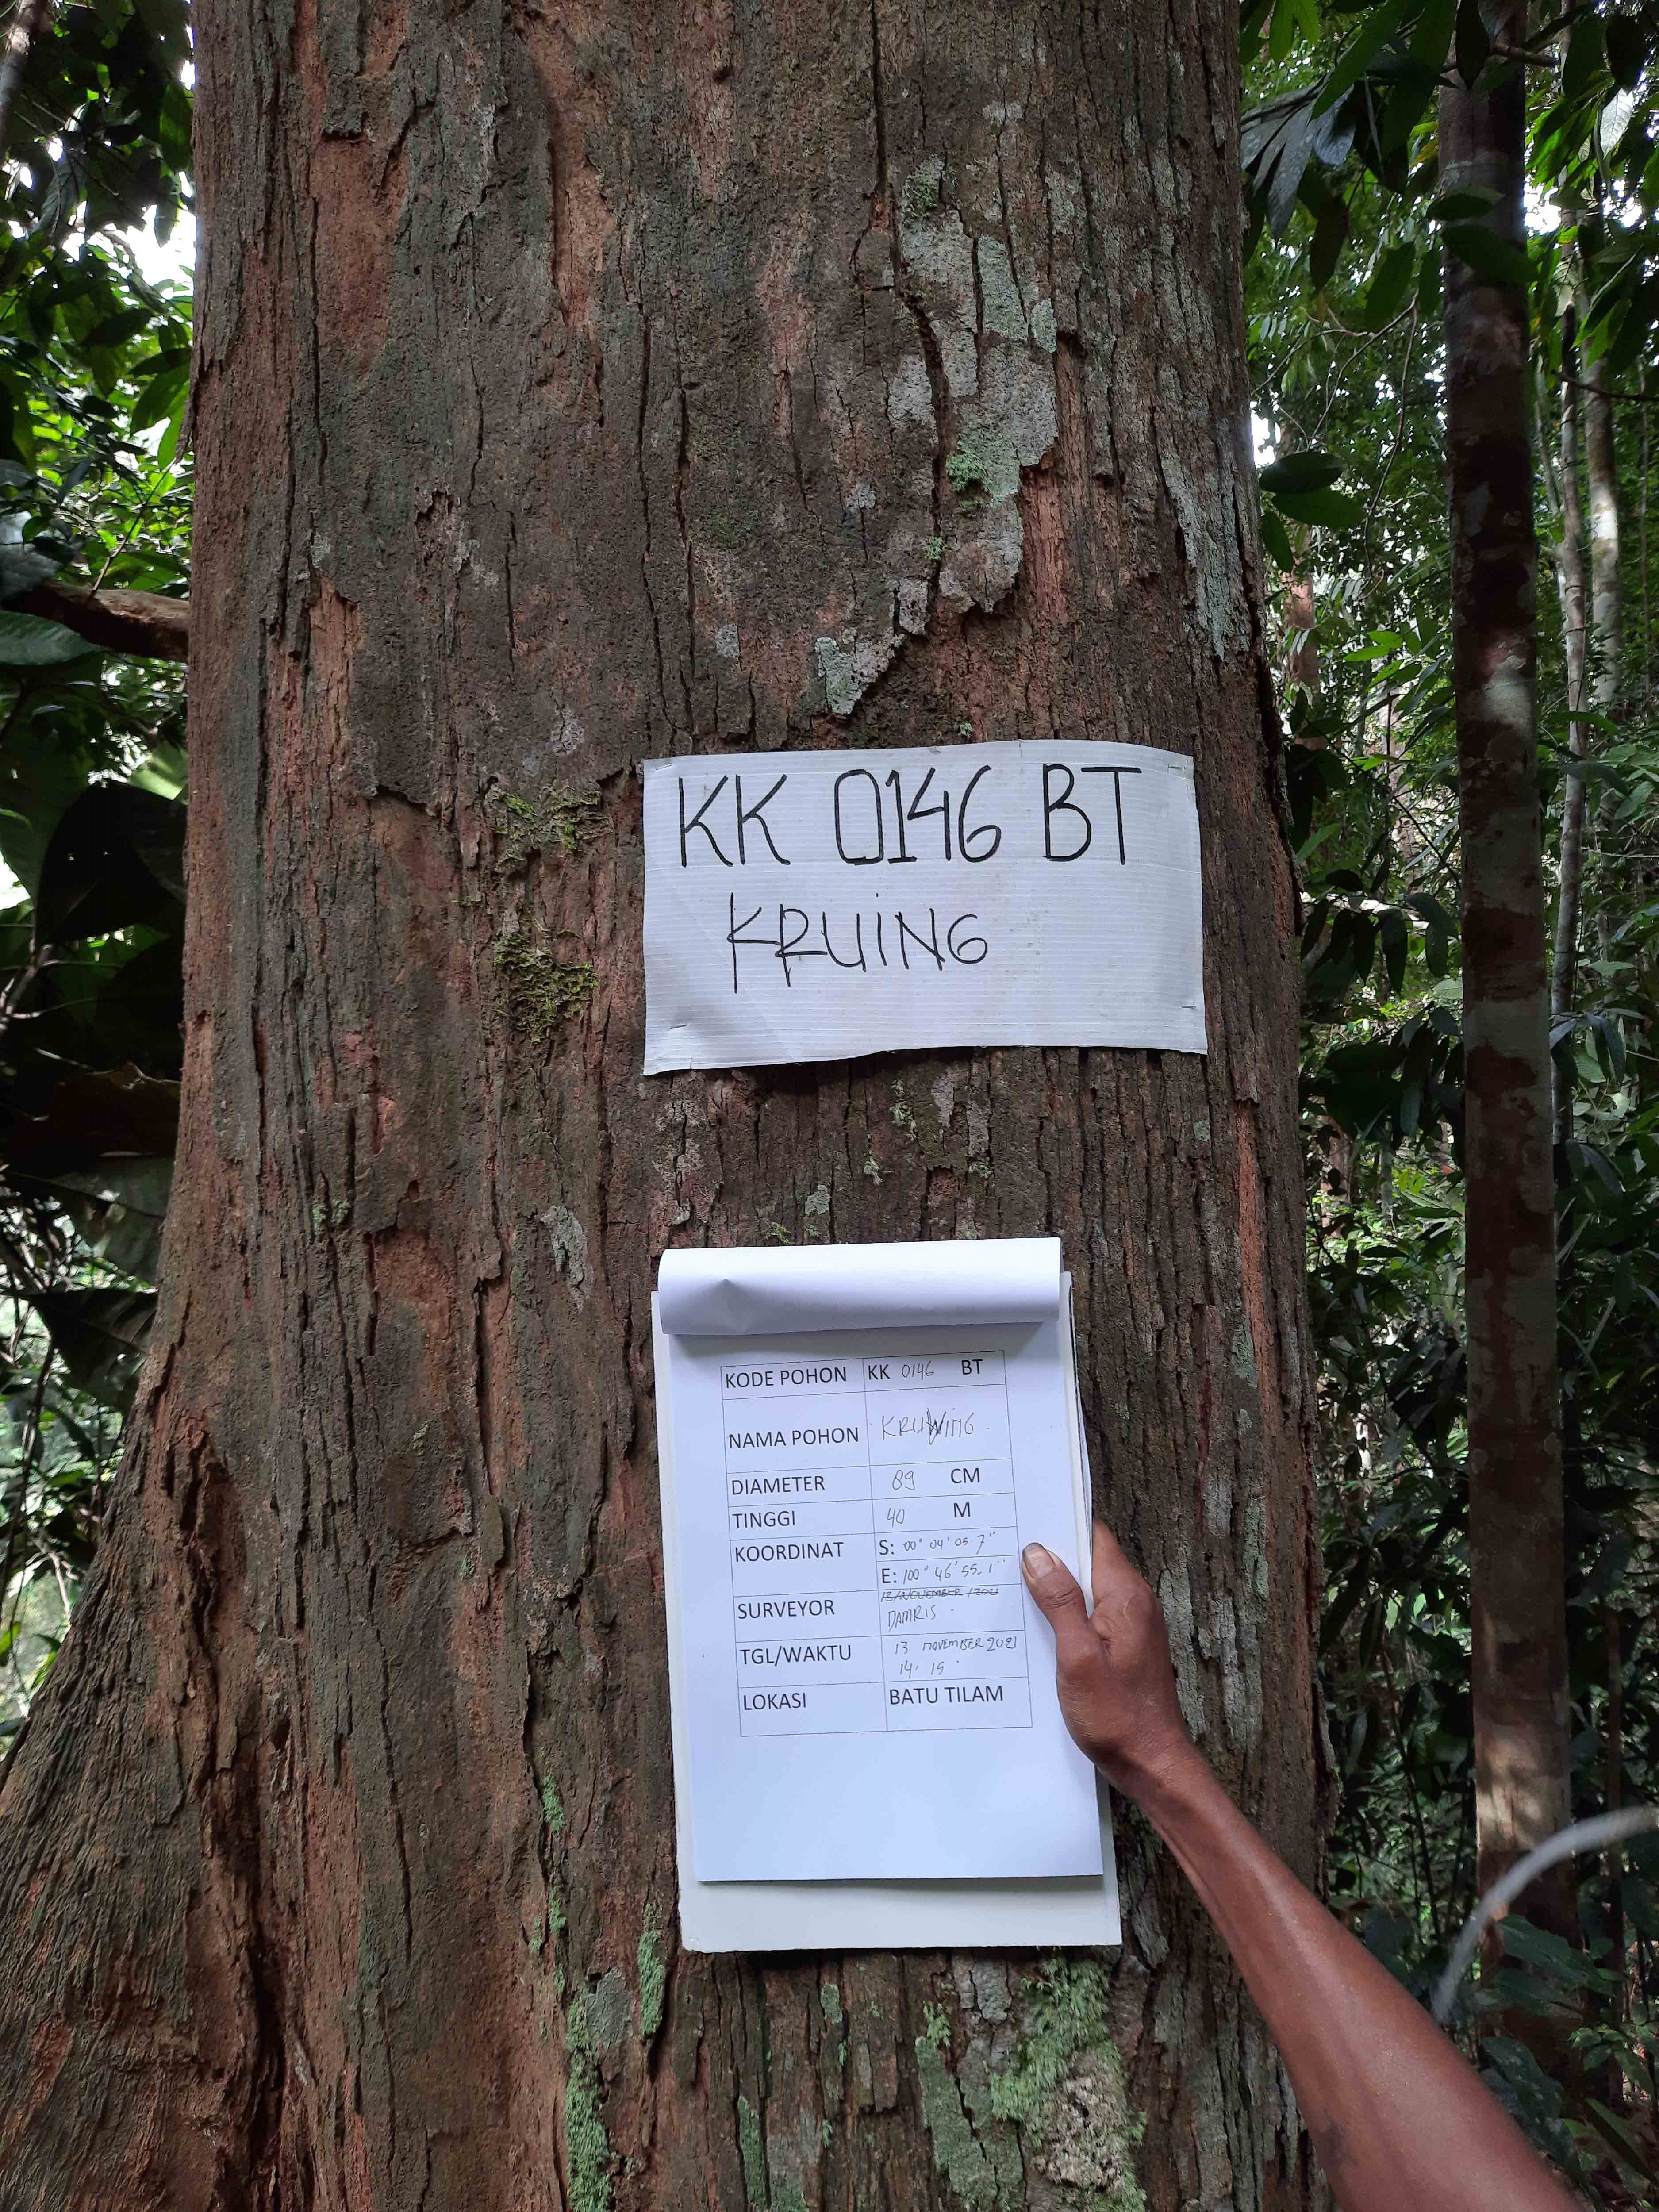 KK 0146 BT
KRUING
KODE POHON KK 0146 BT
NAMA POHON KRUWING
DIAMETER 89 CM
TINGGI 40 M
KOORDINAT S: 00° 04' 05 7"
E: 100° 46' 55.1"
13/NOVEMBER/2021
SURVEYOR DAMRIS.
TGL/WAKTU 13 NOVEMBER 2021
14.15.
LOKASI BATU TILAM